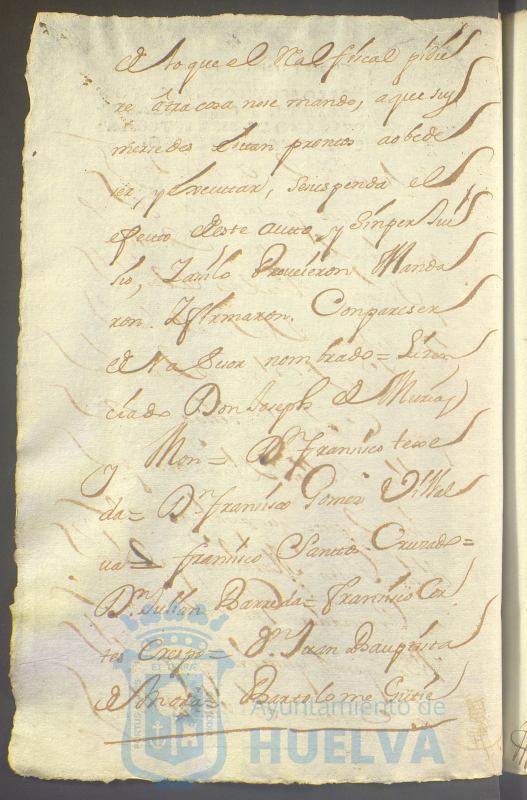 de lo que el Rl. fiscal pidie
re otra cosa nose mande, a que sus
mercedes estan prontos a obede
ser, y executar, se suspenda el
efecto de este auto, y sinper Jui
sio, I asi lo Proveieron Manda
ron. I firmaron. Con pareser
del a sesor nombrado = Lisen
ciado Don Joseph de Murias
y Mon = Dn. Franisco texe
da = Dn. Franisco Gomes Villal
va = Franisco Santtos Cruzado =
Dn. Julian Barreda = Franisco Cor
tes Crespo = Dn. Juan Bauptista
de Bartolome Gutie
Ayuntamiento de
HUELVA